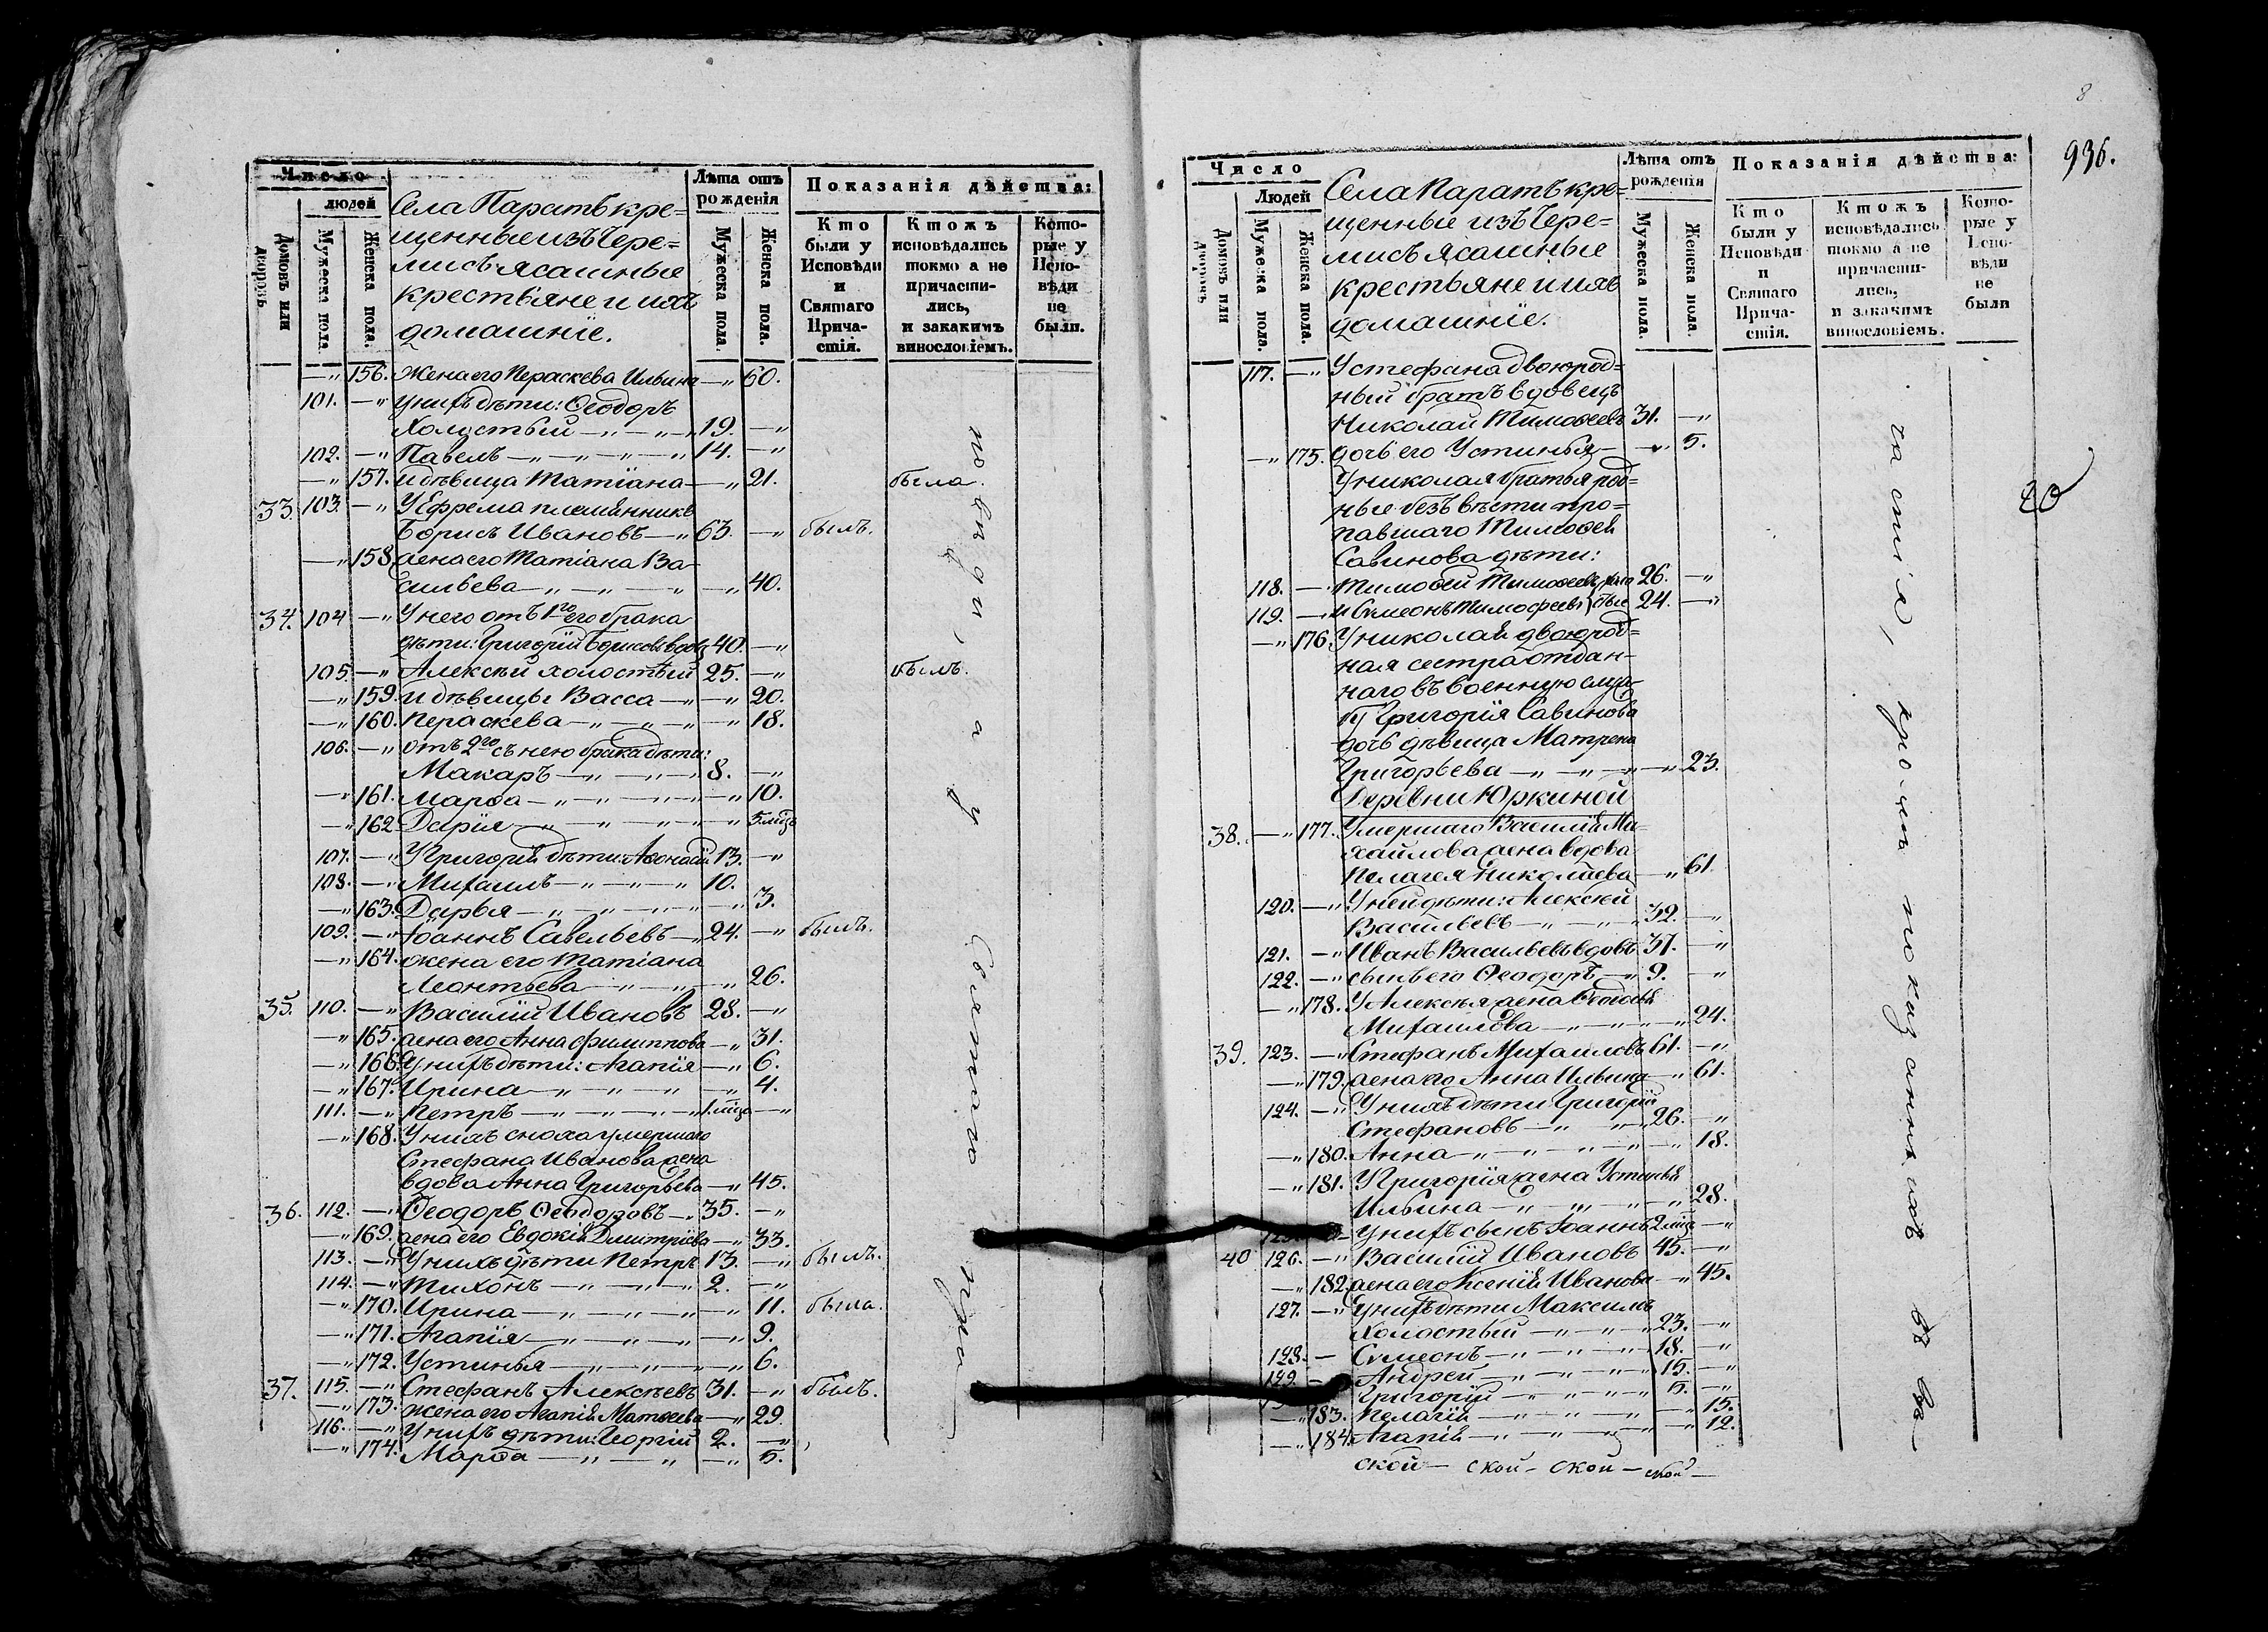 Число
людей
Домовъ или дворовъ
Мужеска пола.
Женска пола.
Села Паратъ кре=
щенные изъ Чере=
мисъ ясашные
крестьяне и ихъ
домашніе.
Лѣта отъ рожденія
Мужеска пола.
Женска пола.
Показанія дѣйства:
Кто были у Исповѣди и Святаго Прича-стія.
Ктожъ исповѣдались токмо а не причасти-лись, и закакимъ винословіемъ.
Кото-рые у Испо-вѣди не были.
—„ 156. Жена его Пераскева Ильина —„ 60.
101. —„ У нихъ дѣти: Ѳеодоръ
Холостый —„ —„ — 19. —„
102. —„ Павелъ —„ —„ —„ —„ 14. —„
—„ 157. и дѣвица Татіана —„ 21. была.
33. 103. —„ У Ефрема племянникъ
Борисъ Ивановъ —„ 63. —„ былъ.
—„ 158. жена его Татіана Ва-
сильева —„ —„ —„ —„ 40.
34. 104 —„ У него отъ 1го его брака
дѣти: Григорій Борисовъ вдов 40. —„
105. —„ Алексѣй холостый 25. —„ былъ.
—„ 159. и дѣвицы Васса —„ —„ 20.
—„ 160. Пераскева —„ —„ —„ —„ 18.
106. —„ отъ 2го съ нею брака дѣти:
Макаръ —„ —„ —„ 8. —„
—„ 161. Марѳа —„ —„ —„ —„ 10.
—„ 162. Дарія —„ —„ —„ —„ 5 мцъ
107. —„ У Григорія дѣти: Аѳонасій 13. —„
108. —„ Михаилъ —„ —„ —„ 10.
—„ 163. Дарья —„ —„ —„ —„ 3.
109. —„ Іоаннъ Савельевъ —„ 24. —„ былъ.
—„ 164. жена его Татіана
Леонтьева —„ —„ —„ 26.
35. 110. —„ Василій Ивановъ 28. —„
—„ 165. жена его Анна Филиппова —„ 31.
—„ 166. У нихъ дѣти: Агапія —„ 6.
—„ 167. Ирина —„ —„ —„ —„ 4.
111. —„ Петръ —„ —„ —„ —„ 1 мцъ —„
—„ 168. У нихъ сноха умершаго
Стефана Иванова жена
вдова Анна Григорьева —„ 45.
36. 112. —„ Ѳеодоръ Ѳеодоровъ —„ 35. —„
—„ 169. жена его Евдокія Дмитріева —„ 33.
113. —„ У нихъ дѣти Петръ 13. —„ былъ.
114. —„ Тихонъ —„ —„ —„ 2. —„
—„ 170. Ирина —„ —„ —„ —„ 11. была.
—„ 171. Агапія —„ —„ —„ —„ 9.
—„ 172. Устинья —„ —„ —„ —„ 6.
37. 115. —„ Стефанъ Алексѣевъ 31. —„ былъ.
—„ 173. жена его Агапія Матвеева —„ 29.
116. —„ У нихъ дѣти: Георгій 2. —„
—„ 174. Марѳа —„ —„ —„ 5.
повѣди, а у Святаго При-
8
936.
Число
Людей
Домовъ или дворовъ
Мужеска пола.
Женска пола.
Села Паратъ кре=
щенные изъ Чере=
мисъ ясашные
крестьяне и ихъ
домашніе.
Лѣта отъ рожденія
Мужеска пола.
Женска пола.
Показанія дѣйства:
Кто были у Исповѣди и Святаго Прича-стія.
Ктожъ исповѣдались токмо а не причасти-лись, и закакимъ винословіемъ.
Кото-рые у Испо-вѣди не были
117. —„ У Стефана двоюрод=
ный братъ вдовецъ
Николай Тимоѳеевъ 31. —„
—„ 175. дочь его Устинья — —„ 5.
У Николая братья род=
ные безъ вѣсти про=
павшаго Тимоѳея
Савинова дѣти:
118. —„ Тимоѳей Тимоѳеевъ 26. —„
119. —„ и Сѵмеонъ Тимофеевъ 24. —„
—„ 176. У Николая двоюрод=
ная сестра отдан-
наго въ военную служ-
бу Григорія Савинова
дочь дѣвица Матрена
Григорьева —„ —„ —„ —„ 23.
Деревни Юркиной
38. —„ 177. Умершаго Василія Ми-
хайлова жена вдова
Пелагея Николаева —„ 61.
120. —„ У ней дѣти: Алексѣй
Васильевъ —„ —„ 32. —„
121. —„ Иванъ Васильевъ вдовъ 37. —„
122. —„ сынъ его Ѳеодоръ —„ 9. —„
—„ 178. У Алексѣя жена Ѳеодосія
Михаилова —„ —„ —„ 24.
39. 123. —„ Стефанъ Михаиловъ 61. —„
—„ 179. жена его Анна Ильина —„ 61.
124. —„ У нихъ дѣти Григорій
Стефановъ —„ —„ 26. —„
—„ 180. Анна —„ —„ —„ —„ 18.
—„ 181. У Григорія жена Устинья
Ильина —„ —„ —„ —„ 28.
125. — У нихъ сынъ Іоаннъ 2 мцъ —„
40 126. —„ Василій Ивановъ 45. —„
—„ 182. жена его Ксенія Иванова —„ 45.
127. —„ У нихъ дѣти Максимъ
Холостый —„ —„ —„ 23. —„
128. — Сѵмеонъ —„ —„ —„ 18. —„
129. — Андрей —„ —„ —„ 15. —„
Григорій —„ —„ —„ 5. —„
—„ 183. Пелагія —„ —„ —„ —„ 15.
—„ 184. Агапія —„ —„ —„ —„ 12.
ской — ской — ской — ской —
частія, кромѣ показанныхъ въ